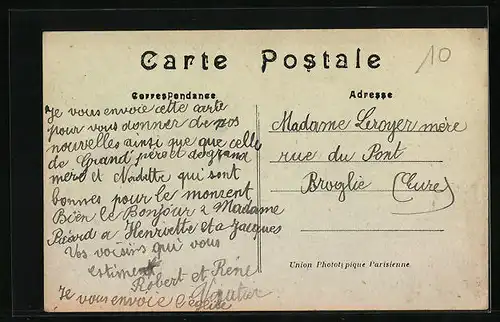 10
Carte Postale
Correspondance
Adresse
Je vous envoie cette carte
pour vous donner de nos
nouvelles ainsi que que celle
de Grand père et de grand
mere et Nadette qui sont
bonnes pour le moment
Bien le Bonjour a Madame
Picard a Henriette et a Jacques
Vos voisins qui vous
estiment
Robert et Réné
Je vous envoie l'eglise
Madame Leroyer mère
rue du Pont
Broglie (Eure)
Union Phototypique Parisienne